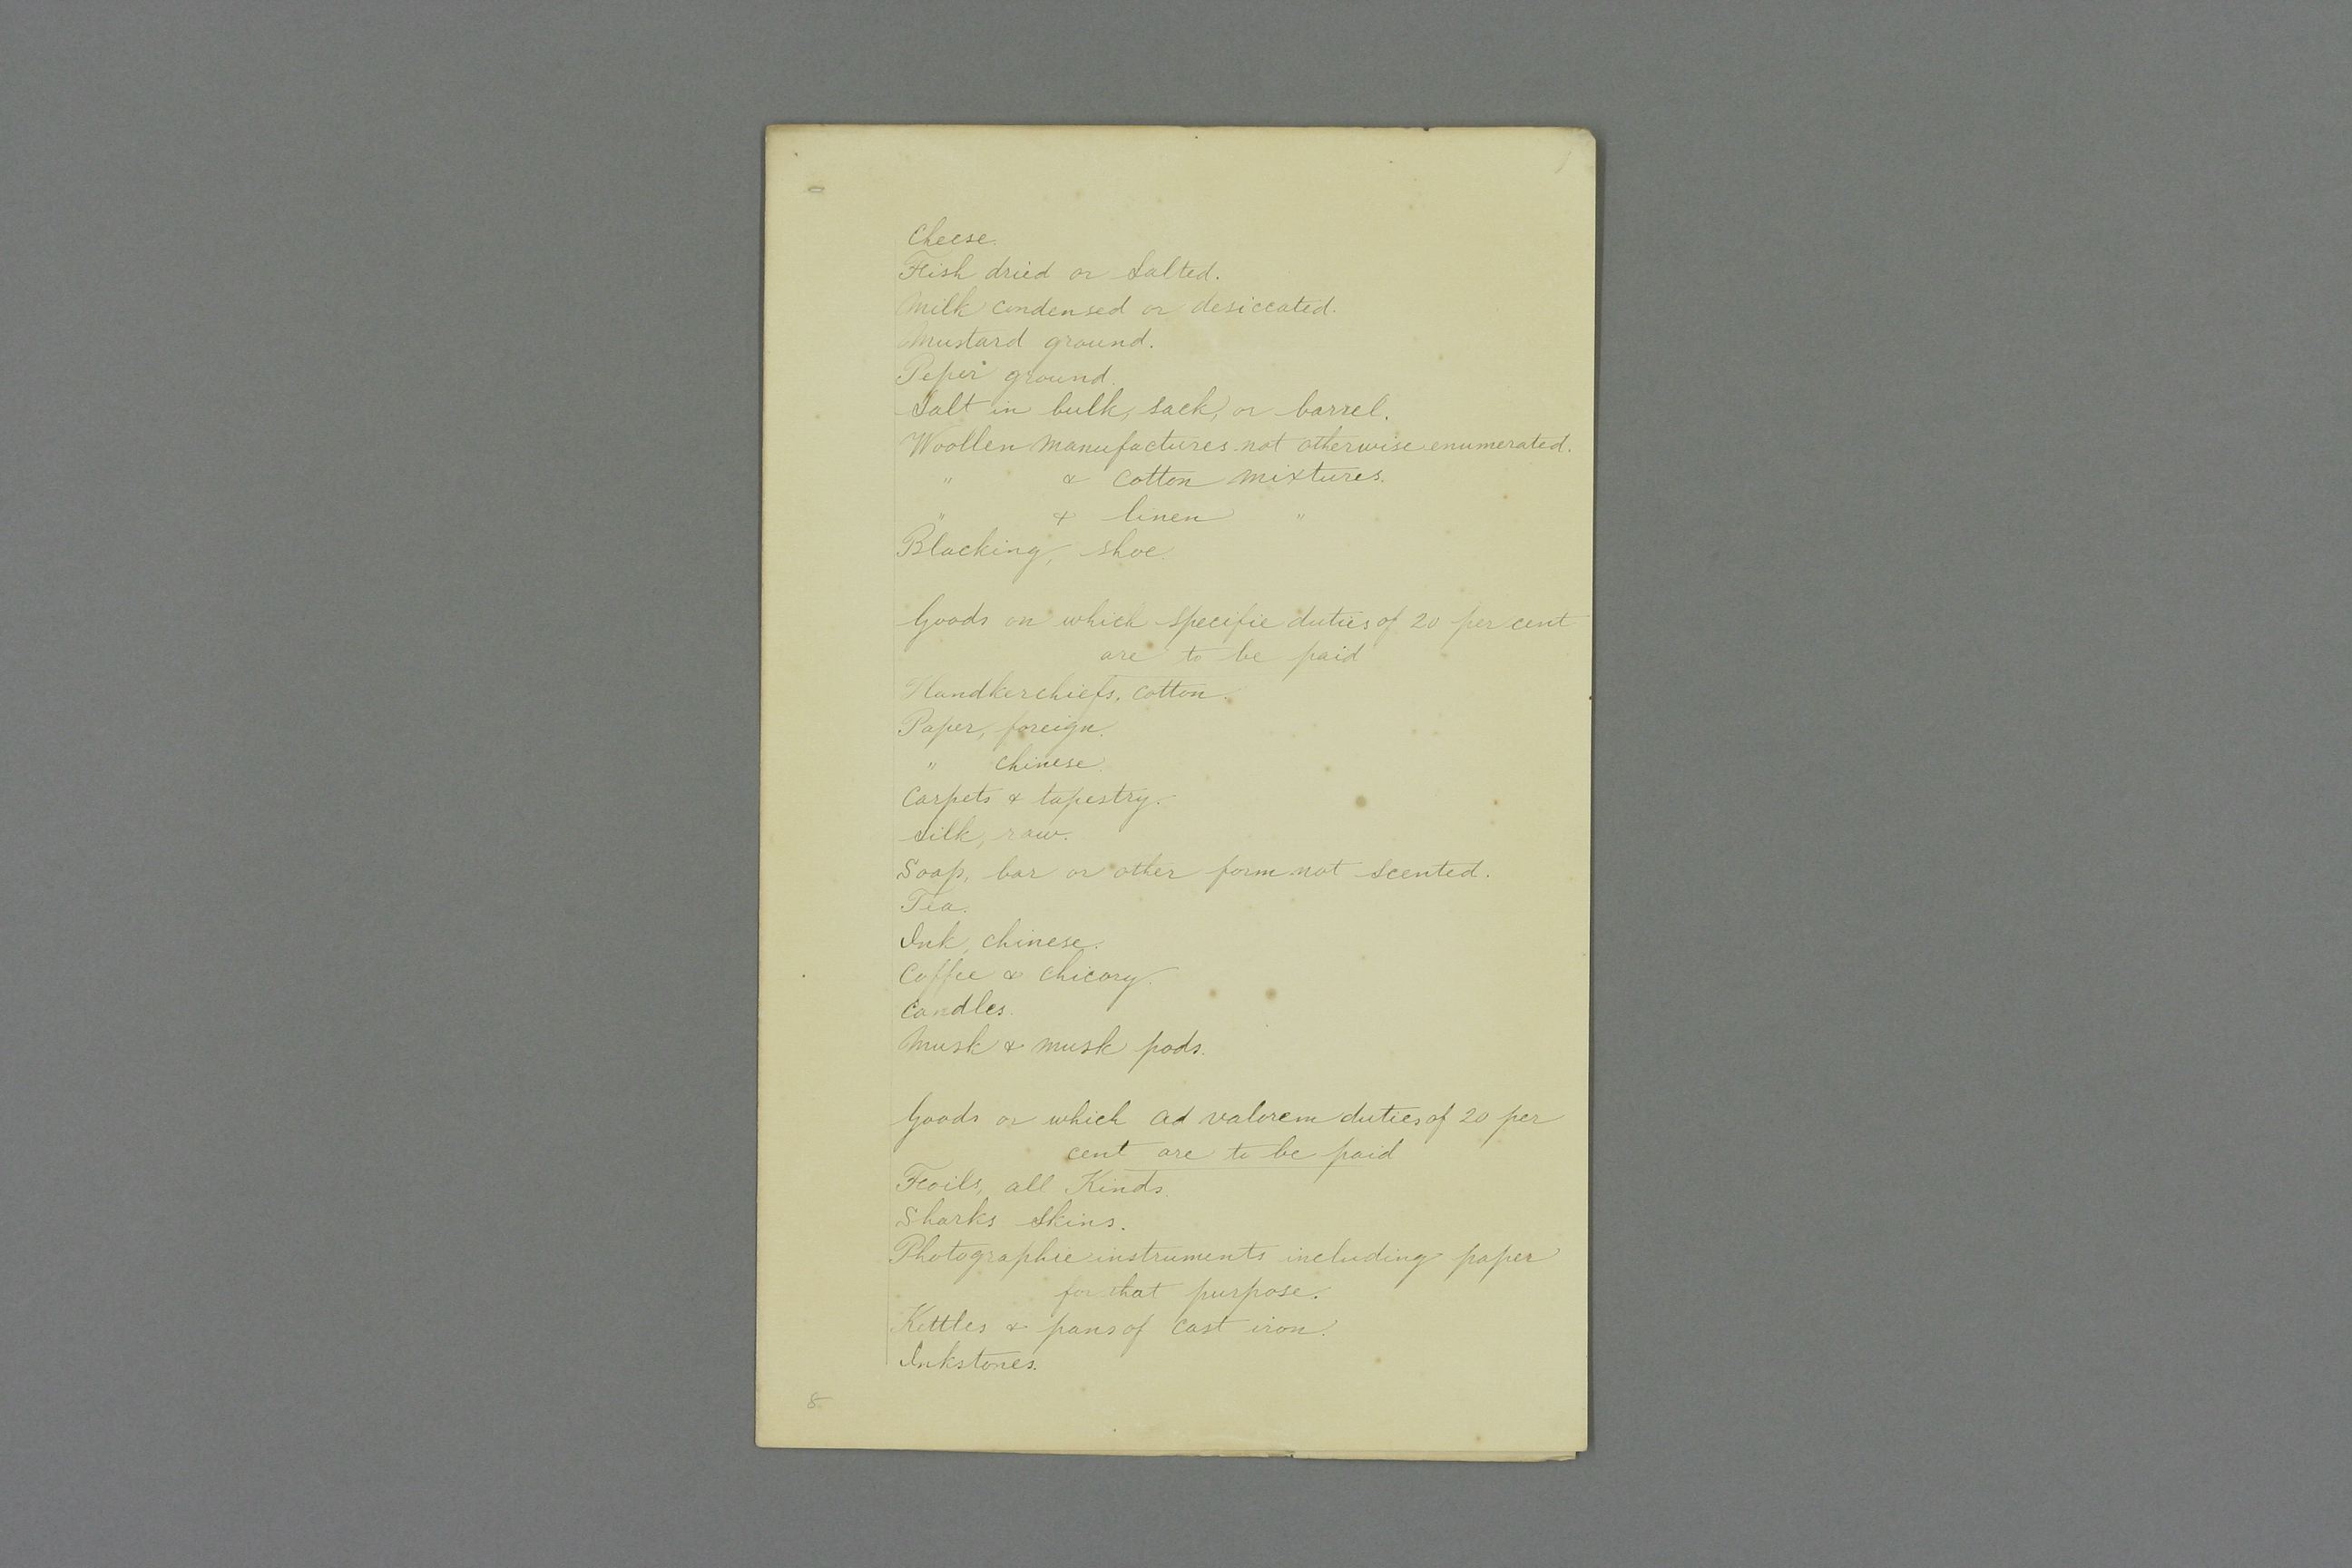 Cheese.
Fish dried or Salted.
Milk condensed or desiccated.
Mustard ground.
Peper ground.
Salt in bulk, sack, or barrel.
Woollen manufactures not otherwise enumerated.
" & cotton mixtures.
" & linen "
Blacking, shoe.
Goods on which specific duties of 20 per cent
are to be paid
Handkerchiefs, cotton.
Paper, foreign.
" chinese.
Carpets & tapestry.
Silk, raw.
Soap, bar or other form not scented.
Tea.
Ink, chinese.
Coffee & chicory.
Candles.
Musk & musk pods.
Goods or which ad valorem duties of 20 per
cent are to be paid
Foils, all Kinds.
Sharks Skins.
Photographic instruments including paper
for that purpose.
Kettles & pans of cast iron.
Inkstones.
8